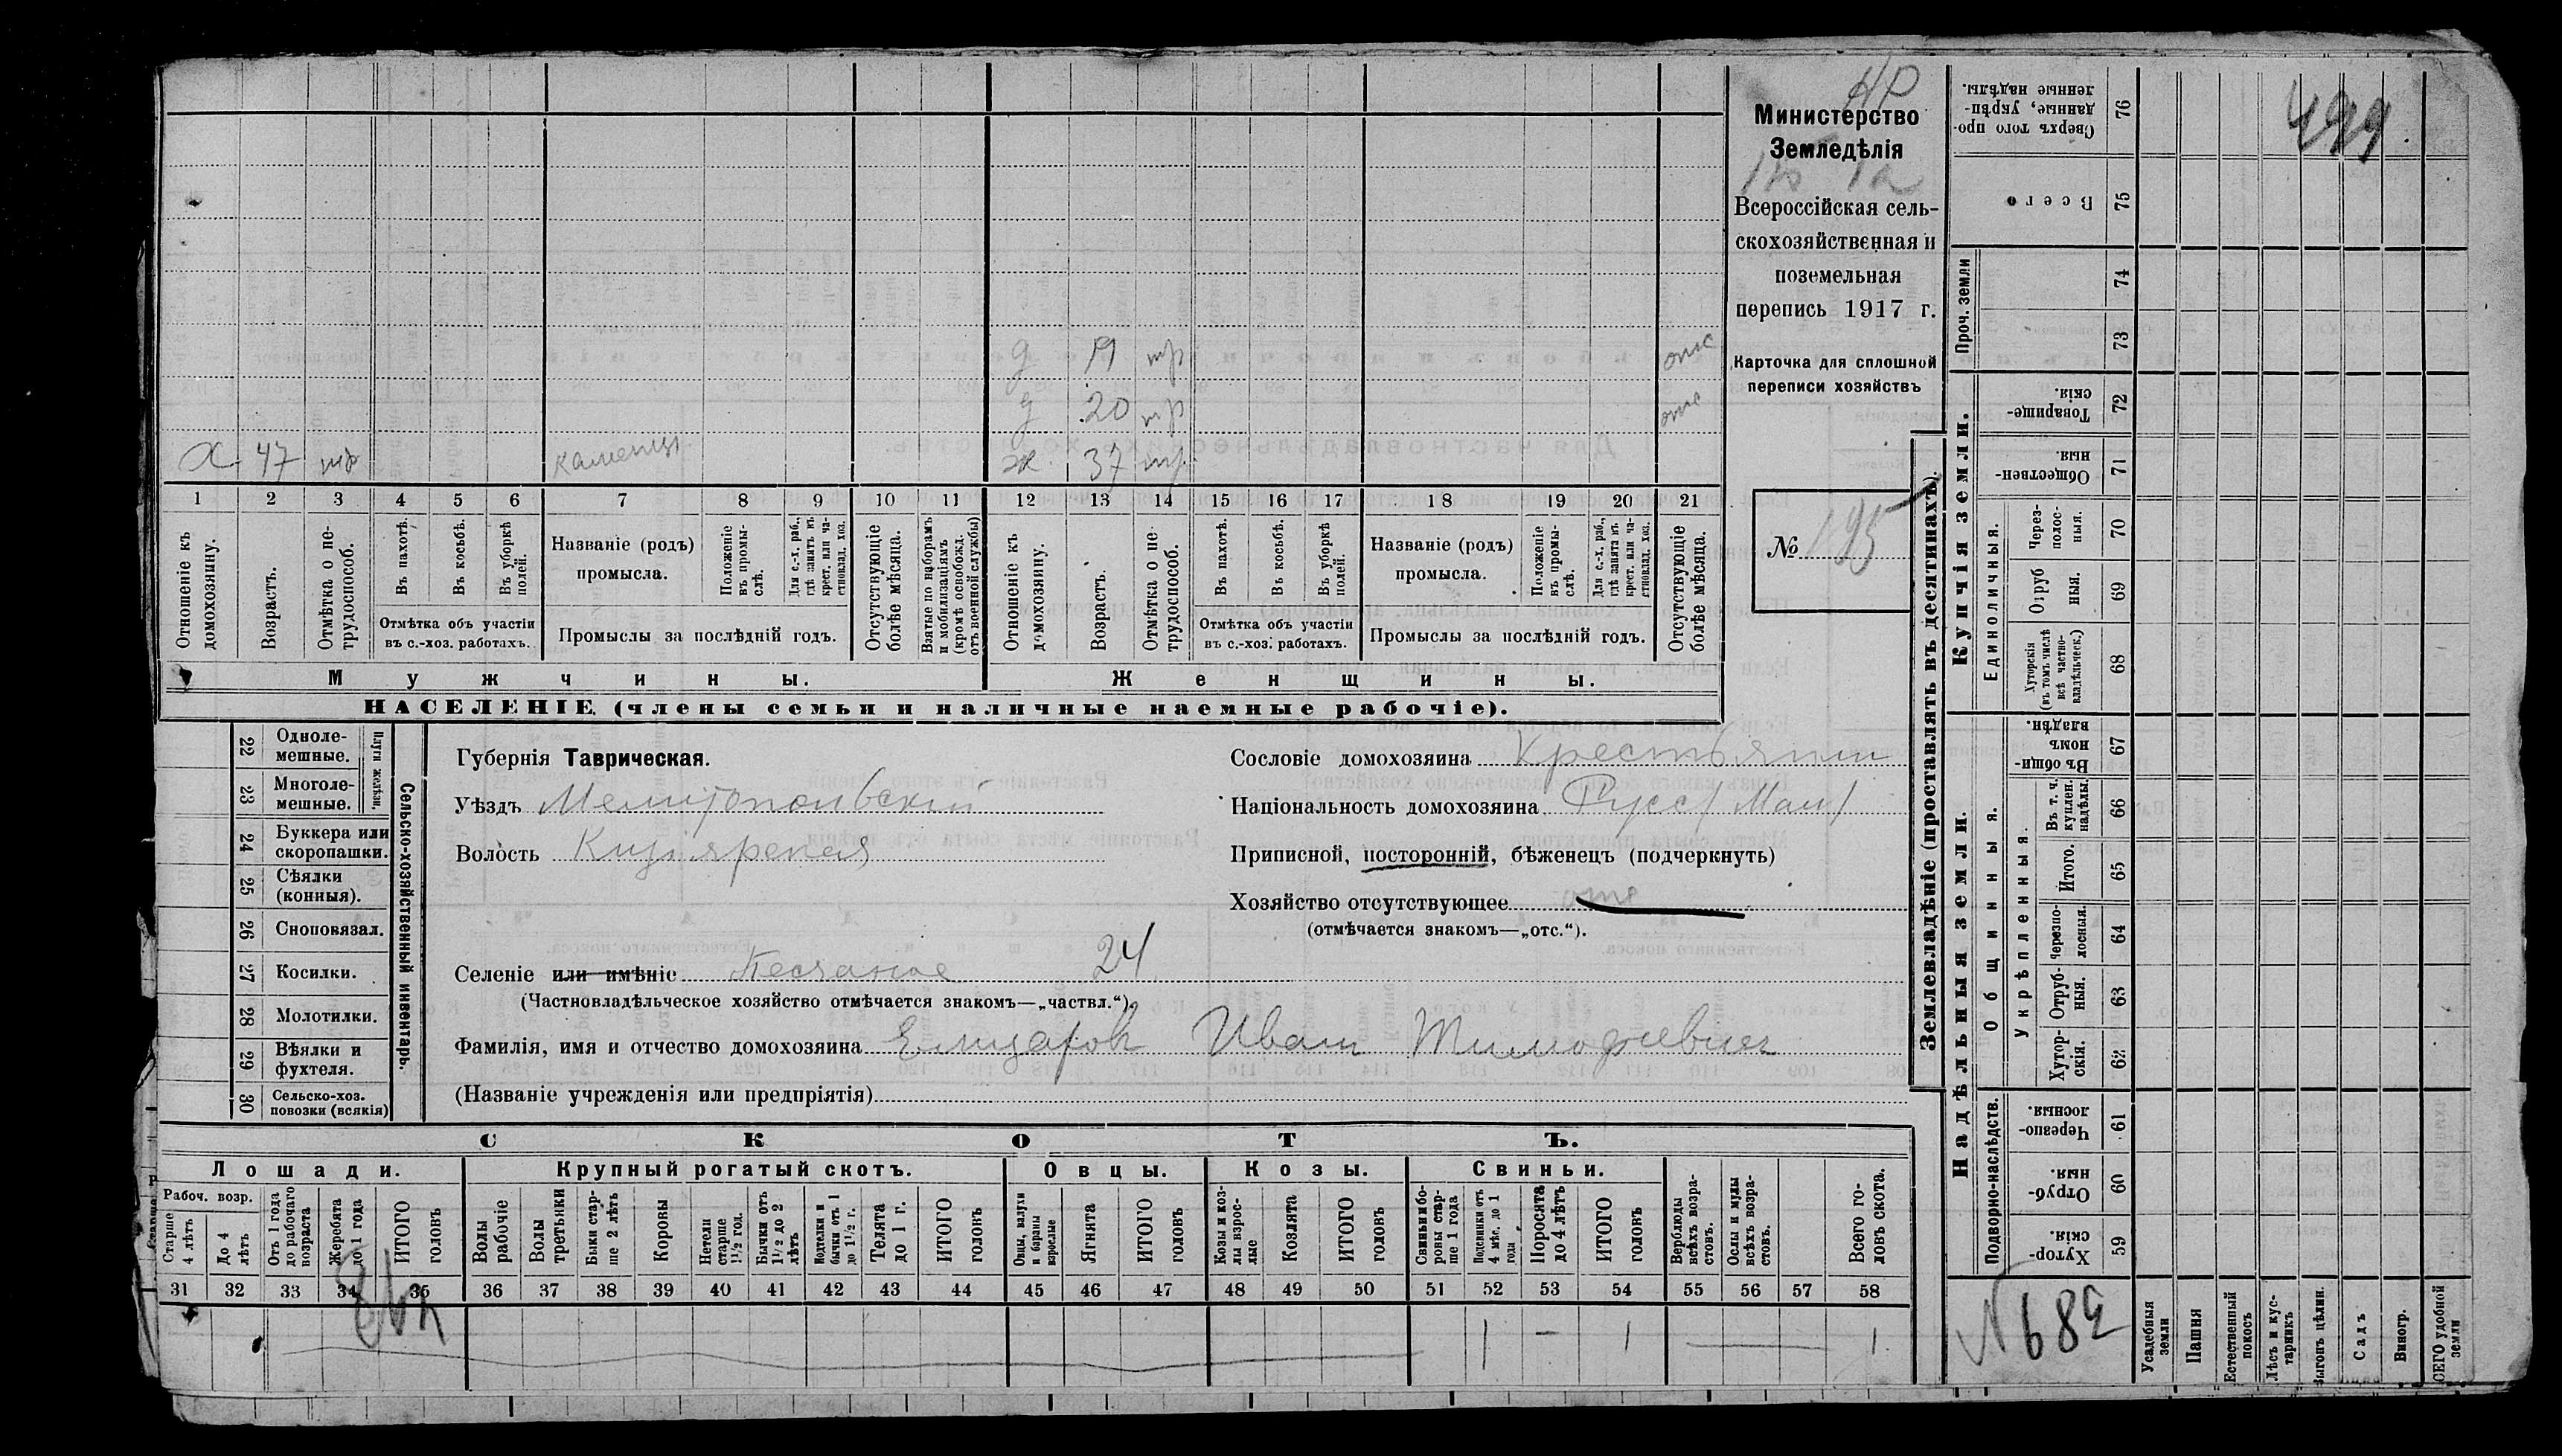 Д 19 тр отс
Д 20 тр отс
Х 47 тр каменщ ж 37 тр
1 2 3 4 5 6 7 8 9 10 11 12 13 14 15 16 17 18 19 20 21
Отношеніе къ домохозяину.
Возрастъ.
Отмѣтка о нетрудоспособ.
Въ пахотѣ.
Въ косьбѣ.
Въ уборкѣ полей.
Отмѣтка объ участіи
въ с.-хоз. работахъ.
Названіе (родъ)
промысла.
Положеніе въ промыслѣ.
Для с.-х. раб., гдѣ занятъ въ крест. или частновлад. хоз.
Промыслы за послѣдній годъ.
Отсутствующіе болѣе мѣсяца.
Взятые по наборамъ и мобилизаціямъ (кромѣ освобожд. отъ военной службы)
Отношеніе къ домохозяину.
Возрастъ.
Отмѣтка о нетрудоспособ.
Въ пахотѣ.
Въ косьбѣ.
Въ уборкѣ полей.
Отмѣтка объ участіи
въ с.-хоз. работахъ.
Названіе (родъ)
промысла.
Положеніе въ промыслѣ.
Для с.-х. раб., гдѣ занята въ крест. или частновлад. хоз.
Промыслы за послѣдній годъ.
Отсутствующіе болѣе мѣсяца.
Мужчины. Женщины.
НАСЕЛЕНІЕ (члены семьи и наличные наемные рабочіе).
Министерство
Земледѣлія
Всероссійская сель-
скохозяйственная и
поземельная
перепись 1917 г.
Карточка для сплошной
переписи хозяйствъ
№ 195
22 Одноле-
мешные.
23 Многоле-
мешные.
Плуги желѣзн.
24 Буккера или
скоропашки.
25 Сѣялки
(конныя).
26 Сноповязал.
27 Косилки.
28 Молотилки.
29 Вѣялки и
фухтеля.
30 Сельско-хоз.
повозки (всякія)
Сельско-хозяйственный инвентарь.
Губернія Таврическая.
Уѣздъ Мелитопольскій
Волость Кизіярская
Селеніе или имѣніе Песчаное 24
(Частновладѣльческое хозяйство отмѣчается знакомъ—„частвл.“).
Фамилія, имя и отчество домохозяина Елизаров Иван Тимофѣевич
(Названіе учрежденія или предпріятія)
Сословіе домохозяина Крестьянин
Національность домохозяина Русс/Мал/
Приписной, посторонній, бѣженецъ (подчеркнуть)
Хозяйство отсутствующее отс
(отмѣчается знакомъ—„отс.“).
СКОТЪ.
Лошади. Крупный рогатый скотъ. Овцы. Козы. Свиньи.
Рабоч. возр.
Старше 4 лѣтъ
До 4 лѣтъ
Отъ 1 года до рабочаго возраста
Жеребята до 1 года
ИТОГО головъ
Волы рабочіе
Волы третьяки
Быки старше 2 лѣтъ
Коровы
Нетели старше 1½ год.
Бычки отъ 1½ до 2 лѣтъ
Подтелки и бычки отъ 1 до 1½ г.
Телята до 1 г.
ИТОГО головъ
Овцы, валухи и бараны взрослые
Ягнята
ИТОГО головъ
Козы и козлы взрослые
Козлята
ИТОГО головъ
Свиньи боровы старше 1 года
Подсвинки отъ 4 мѣс. до 1 года
Поросята до 4 лѣтъ
ИТОГО головъ
Верблюды всѣхъ возрастовъ.
Ослы и мулы всѣхъ возрастовъ.
Всего головъ скота.
31 32 33 34 35 36 37 38 39 40 41 42 43 44 45 46 47 48 49 50 51 52 53 54 55 56 57 58
1 – 1 1
Землевладѣніе (проставлять въ десятинахъ)
499
Сверхъ того проданные, укрѣпленные надѣлы. 76
Всего 75
Проч. земли 74
73
Купчія земли.
Товарищескія 72
Общественныя. 71
Единоличныя.
Через-
полос-
ныя. 70
Отруб
ныя. 69
Хуторскія (въ томъ числѣ всѣ частновладѣльческ.) 68
Надѣльныя земли.
Общинныя.
Въ общинномъ владѣн. 67
Укрѣпленныя.
Въ т. ч. куплен. надѣлы. 66
Итого. 65
Черезполосныя. 64
Отрубныя. 63
Хуторскія. 62
Подворно-наслѣдств.
Черезполосныя. 61
Отрубныя. 60
Хуторскія. 59
N 682
Усадебныя земли
Пашня
Естественный покосъ
Лѣсъ и кустарникъ
Выгонъ цѣлин.
Садъ
Виногр.
ВСЕГО удобной земли